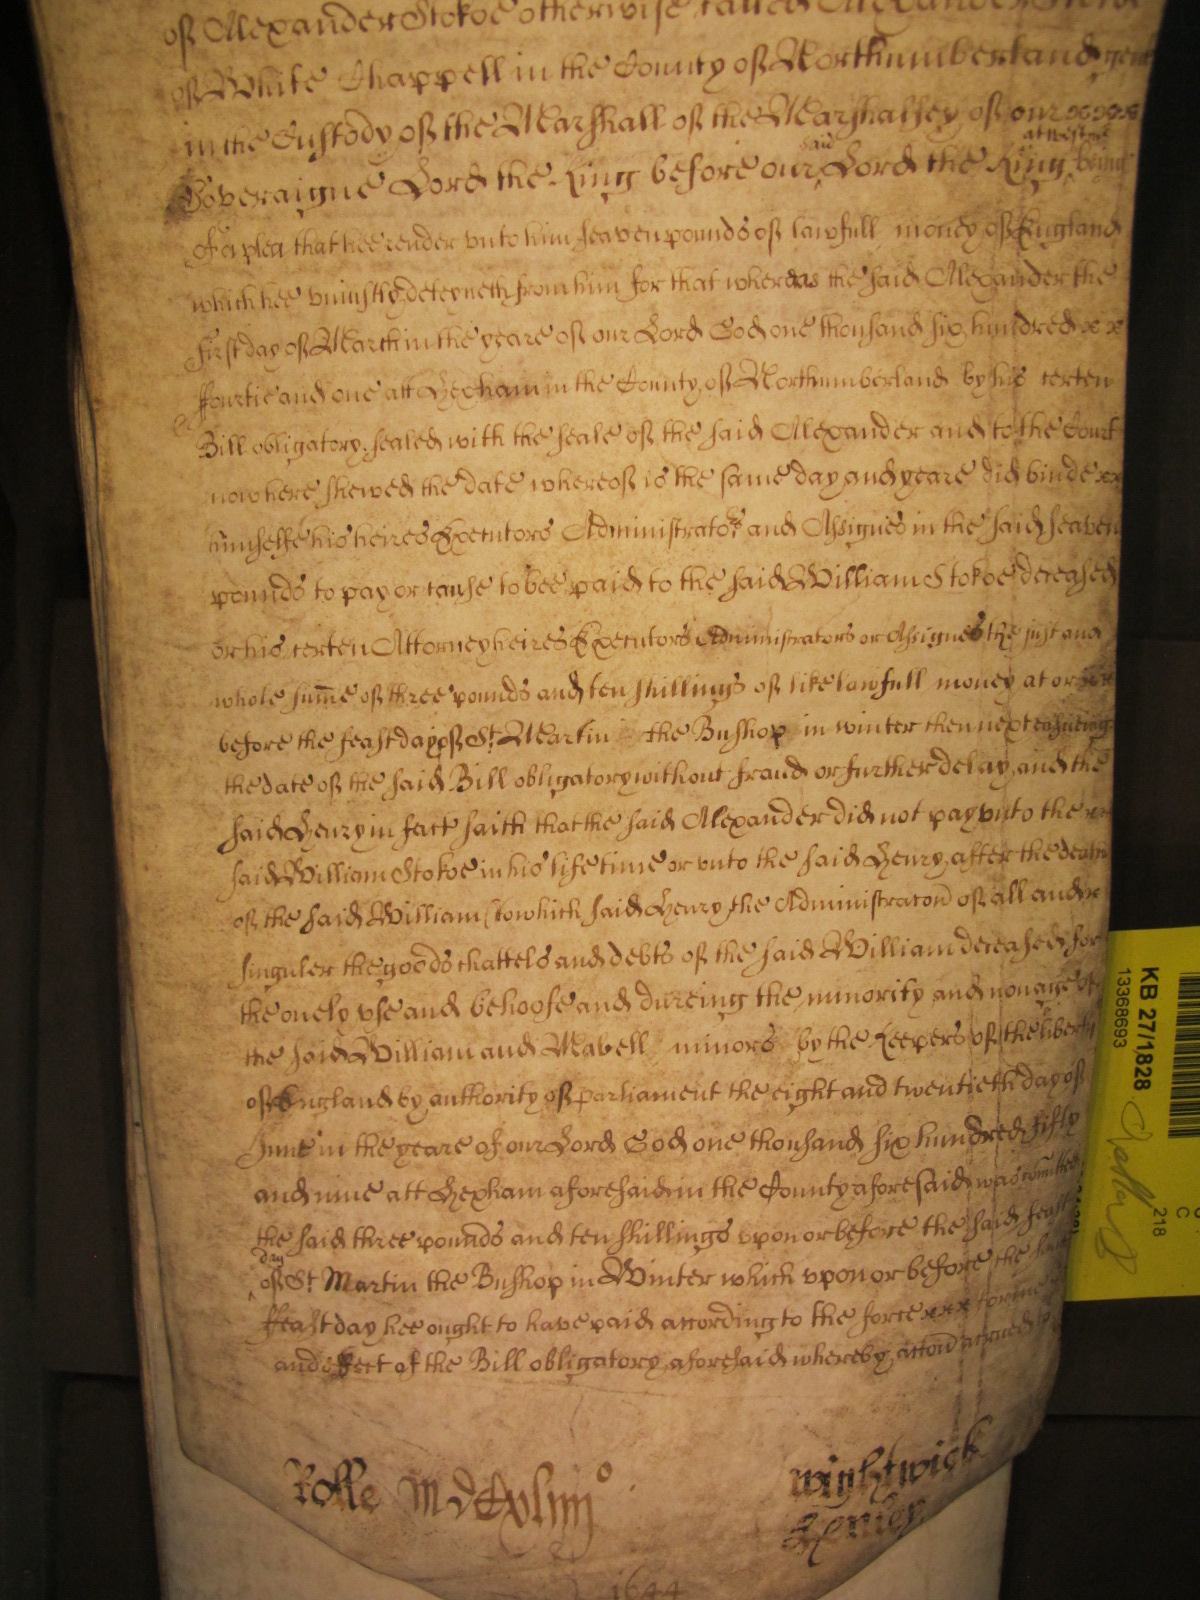 of Alexander Stokoe otherwise called Alexander
of White Chappell in the County of Northumberland gent
in the Custody of the Marshall of the Marshalsey of our xxxx
said at westm
Soveraigne Lord the King before our Lord the King being
Of a plea that hee render unto him seaven pounds of lawfull money of England
which hee uniustly deteyneth from him for that whereas the said Alexander the
first day of March in the yeare of our Lord God one thousand six hundred x x
ffourtie and one att Hexham in the County of Northumberland by his certen
Bill obligatory sealed with the seale of the said Alexander and to the Court
now here shewed the date whereof is the same day and yeare did binde xx
himselfe his heires Executors Administrators and Assignes in the said seaven
pounds to pay or cause to bee paid to the said William Stokoe deceased
or his certen Attorney heires Executors Administrators or Assignes the just and
whole sume of three pounds and ten shillings of like lawfull money at or
before the feast day of St. Martin the Bushop in winter then next ensueing
the date of the said Bill obligatory without fraud or further delay and the
said Henry in fact saith that the said Alexander did not pay unto the xx
said William Stokoe in his life time or unto the said Henry after the death
of the said William (to which said Henry the Administracon of all and x
singuler the goods chattels and debts of the said William deceased for
the onely use and behoofe and dureing the minority and nonage of
the said William and Mabell minors by the Keepers of the liberty
of England by authority of parliament the eight and twentieth day of
June in the yeare of our Lord God one thousand six hundred fifty
and nine att Hexham aforesaid in the County aforesaid was comitted
the said three pounds and ten shillings upon or before the said feast
day
of St Martin the Bushop in Winter which upon or before the same
ffeast day hee ought to have paid according to the force xxx forme
and effect of the Bill obligatory aforesaid whereby accon accrued
Rolle MDCxliiij o
Wightwick
Henley
1644
KB 27/1828
13368693
218
C